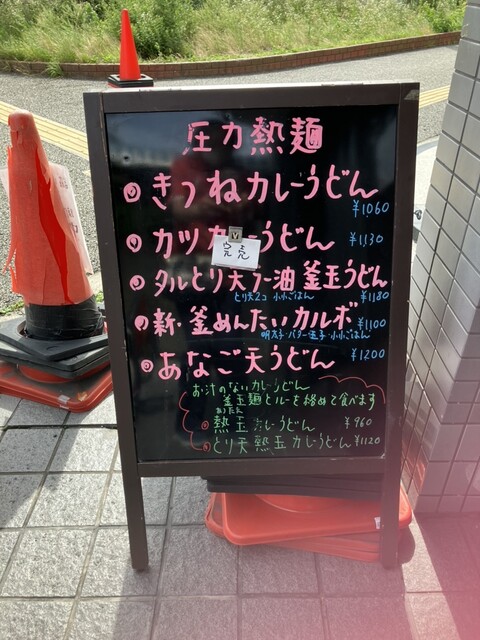 圧力熱麺
◎きつねカレーうどん ¥1060
◎カツカレーうどん ¥1130
売り切れ
◎タルとり天ラー油釜玉うどん
とり天2コ 小ごはん ¥1180
◎新・釜めんたいカルボ ¥1100
明太子・バター・玉子・小ごはん
◎あなご天うどん ¥1200
お汁のないカレーうどん
釜玉麺とルーを絡めて食べます
◎熱玉カレーうどん ¥960
◎とり天熱玉カレーうどん ¥1120